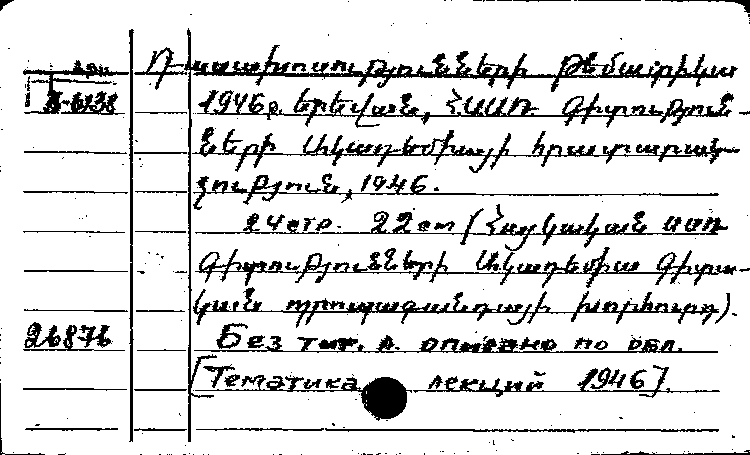 Դասախոսությունների թեմատիկա
1946թ. Երևան, ՀՍՍՌ Գիտություն-
ների Ակադեմիայի հրատարակ-
չություն, 1946.
24стр. 22см (Հայկական ՍՍՌ
Գիտությունների Ակադեմիա Գիտա-
կան պրոպագանդայի խորհուրդ).
26876 Без тит. л. описано по обл.
[Тематика лекций 1946].